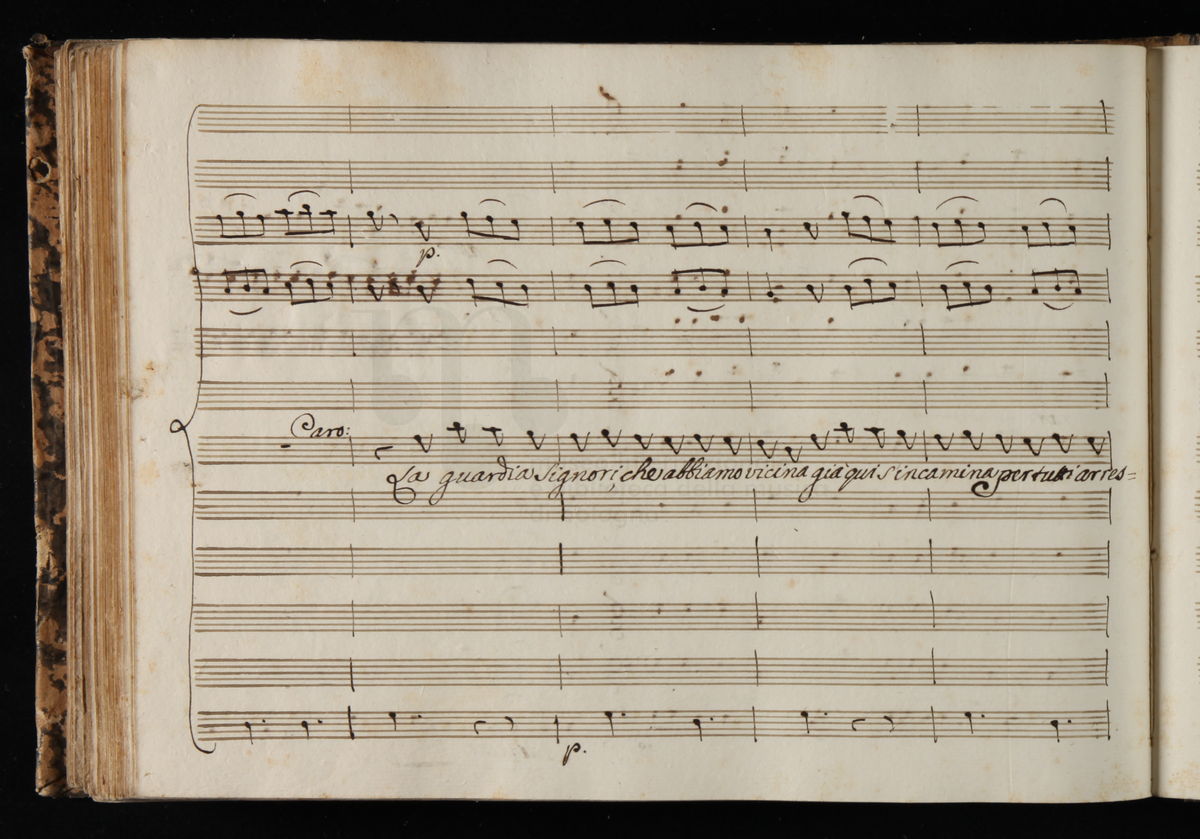 p.
Caro:
La guardia Signori, che abbiamo vicina già qui s'incamina per tutti arres=
p.